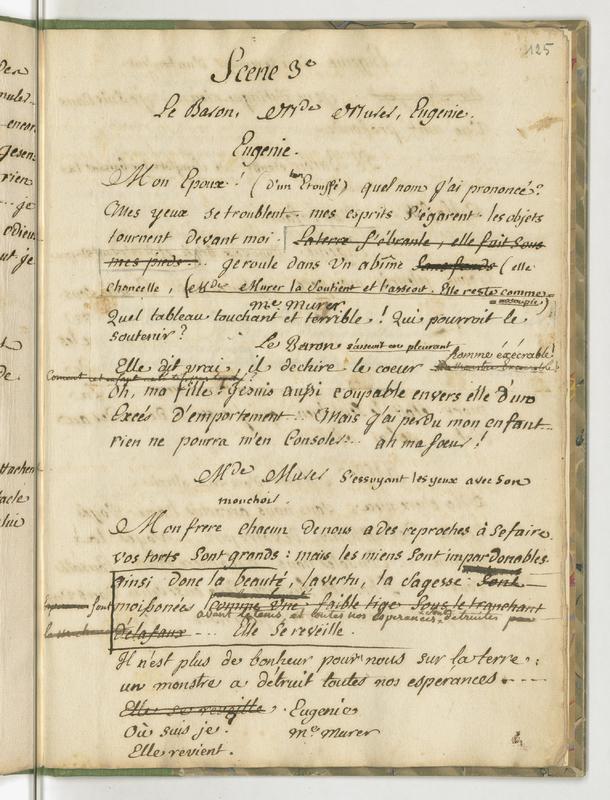 125
Scene 3e
Le Baron, Mde Murer, Eugenie.
Eugenie.
Mon Epoux! (d'un ton Etouffé) quel nom j'ai prononcé?
Mes yeux se troublent.. mes esprits s'égarent. les objets
tournent devant moi. La terre s'ébranle, elle fuit sous
mes pieds... je roule dans un abîme sans fonds (elle
chancelle, (Mde Murer la soutient et l'asseoit. Elle reste comme
assoupie)
Me Murer
Quel tableau touchant et terrible! Qui pourroit le
soutenir?
Le Baron s'asseoit en pleurant
Elle dit vrai, il dechire le coeur homme exécrable!
Oh, ma fille! Je suis aussi coupable envers elle d'un
Excés d'emportement... Mais j'ai perdu mon enfant..
rien ne pourra m'en Consoler... ah ma soeur!
Mde Murer s'essuyant les yeux avec son
mouchoir.
Mon frere chacun de nous a des reproches à se faire.
vos torts sont grands: mais les miens sont impardonables.
ainsi donc la beauté, la vertu, la sagesse sont
sont moissonées comme une faible tige sous le tranchant
avant le tems, et toutes nos esperances detruites
de la faux... Elle se reveille.
Il n'est plus de bonheur pour nous sur la terre:
un monstre a détruit toutes nos esperances....
Elle se reveille. Eugenie
Où suis je. Me Murer
Elle revient.